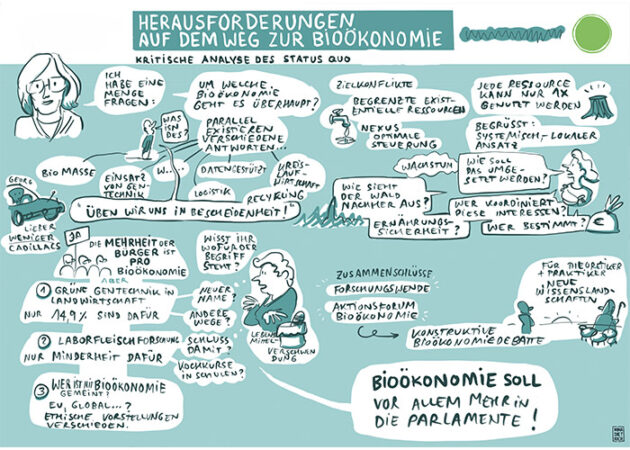 HERAUSFORDERUNGEN
AUF DEM WEG ZUR BIOÖKONOMIE
KRITISCHE ANALYSE DES STATUS QUO
ICH
HABE EINE
MENGE
FRAGEN:
UM WELCHE
BIOÖKONOMIE
GEHT ES ÜBERHAUPT?
WAS
ISN
DES?
PARALLEL
EXISTIEREN
VERSCHIEDENE
ANTWORTEN...
BIO MASSE
EINSATZ
VON GEN-
TECHNIK
W...
DATENGESTÜTZT
LOGISTIK
KREIS-
LAUF-
WIRTSCHAFT
RECYKLING
GEORG
"ÜBEN WIR UNS IN BESCHEIDENHEIT!"
LIEBER
WENIGER
CADILLACS
ZIELKONFLIKTE
BEGRENZTE EXIST-
ENTIELLE RESSOURCEN
NEXUS
OPTIMALE
STEUERUNG
JEDE RESSOURCE
KANN NUR 1X
GENUTZT WERDEN
BEGRÜSST:
SYSTEMISCH-LOKALER
ANSATZ
WACHSTUM
WIE SOLL
DAS UMGE-
SETZT WERDEN?
WIE SIEHT
DER WALD
NACHHER AUS?
ERNÄHRUNGS-
SICHERHEIT?
WER KOORDINIERT
DIESE INTERESSEN?
WER BESTIMMT?
JA
DIE MEHRHEIT DER
BÜRGER IST
PRO
BIOÖKONOMIE
ABER
WISST IHR
WOFÜR DER
BEGRIFF
STEHT?
1 GRÜNE GENTECHNIK IN
LANDWIRTSCHAFT
NUR 14,9% SIND DAFÜR
NEUER
NAME?
ANDERE
WEGE?
2 LABORFLEISCHFORSCHUNG
NUR MINDERHEIT DAFÜR
SCHLUSS
DAMIT?
VOCHKURSE
IN SCHULEN?
LEBENS
MITTEL-
VERSCHWEN
DUNG
3 WER IST MIT BIOÖKONOMIE
GEMEINT?
EU, GLOBAL...?
ETHISCHE VORSTELLUNGEN
VERSCHIEDEN.
ZUSAMMENSCHLÜSSE
FORSCHUNGSWENDE
AKTIONSFORUM
BIOÖKONOMIE
KONSTRUKTIVE
BIOÖKONOMIEDEBATTE
FÜR THEORETIKER
+ PRAKTIKER
NEUE
WISSENSLAND-
SCHAFTEN
BIOÖKONOMIE SOLL
VOR ALLEM MEHR IN
DIE PARLAMENTE!